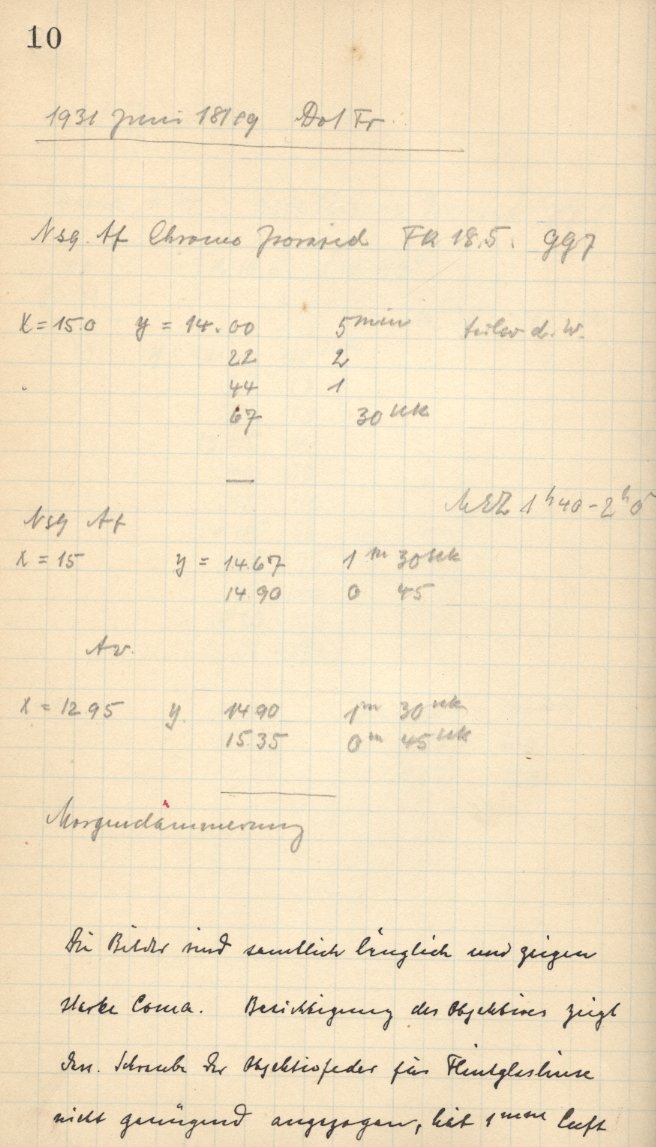 10
1931 Juni 18/19 Dol Fr
Nsg. Af Chromo FR 18.5. gg7
X = 15.0 y = 14.00 5 min d. W.
22 2
44 1
67 30 sek
MEZ 1 h 40 - 2 h 0
Nsg Af
X = 15 y = 14.67 1 m 30 sek
14.90 0 45
Av.
X = 12 95 y 14 90 1 m 30 sek
15 35 0 m 45 sek
Morgendämmerung
Die Bilder sind samtlich länglich und zeigen
starke Coma. Besichtigung des Objektives zeigt
Schraube der Objektivfeder für Flintglaslinse
nicht genügend angezogen, hat 1 mm Luft